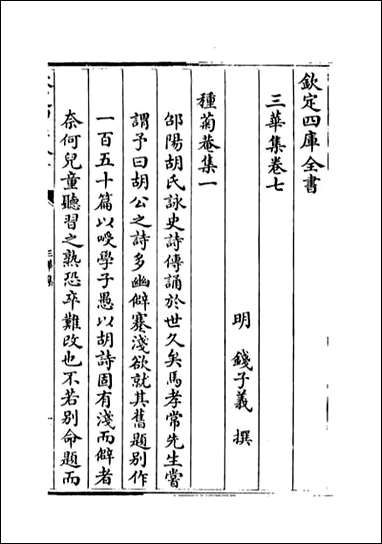 欽定四庫全書
三華集卷七
明 錢子義 撰
種菊菴集一
邰陽胡氏詠史詩傳誦於世久矣馬孝常先生嘗
謂予曰胡公之詩多幽僻蹇淺欲就其舊題別作
一百五十篇以嘜學子愚以胡詩固有淺而僻者
奈何兒童聽習之熟恐卒難改也不若别命題而
三華集